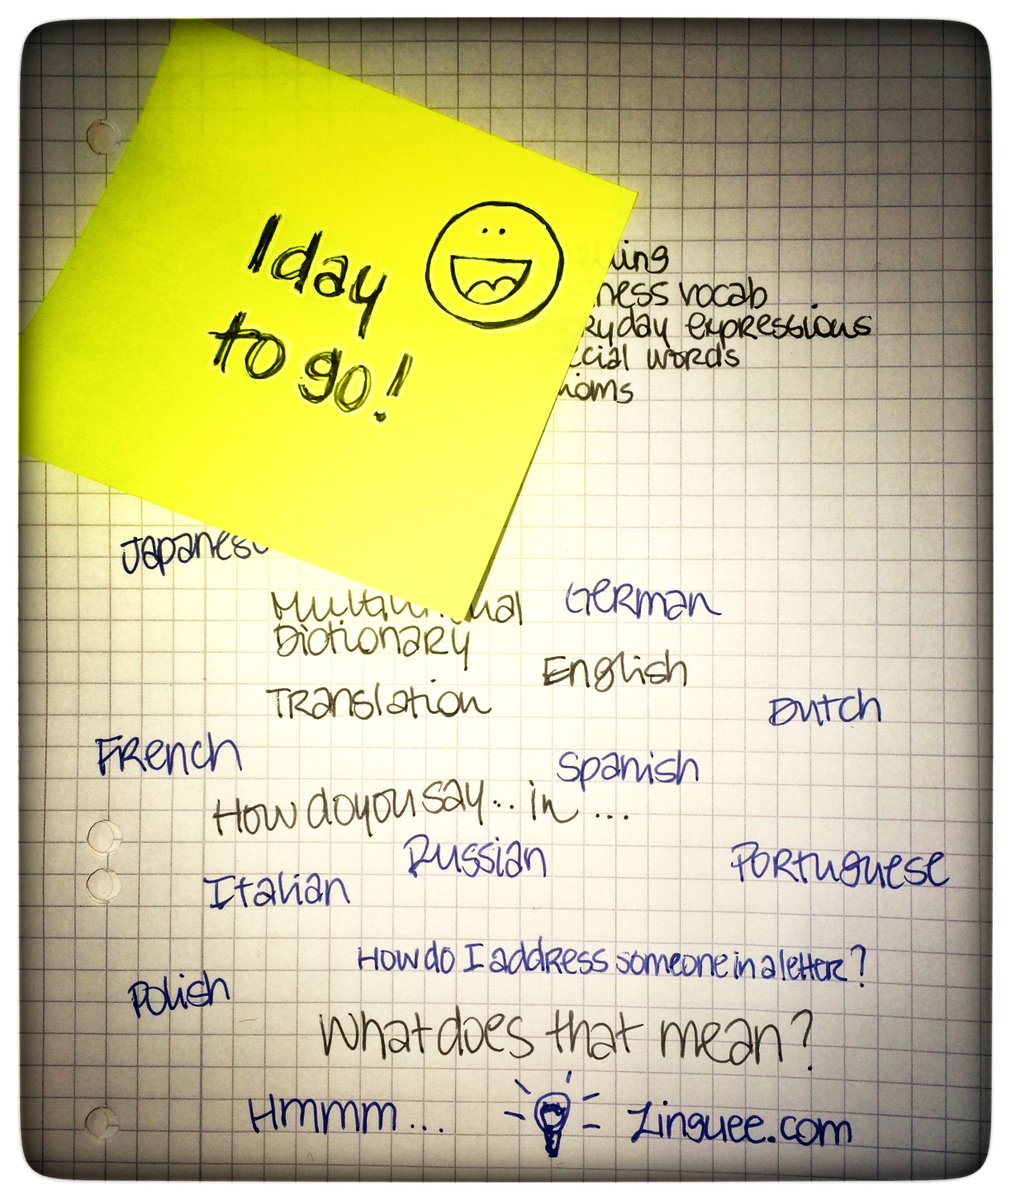 1 day
to go!
elling
ness vocab
ryday expressions
ecial words
ioms
Japanese
Multilingual
Dictionary
German
English
Translation
Dutch
French
Spanish
How do you say .. in ...
Russian
Portuguese
Italian
How do I address someone in a letter?
Polish
What does that mean?
Hmmm... Linguee.com